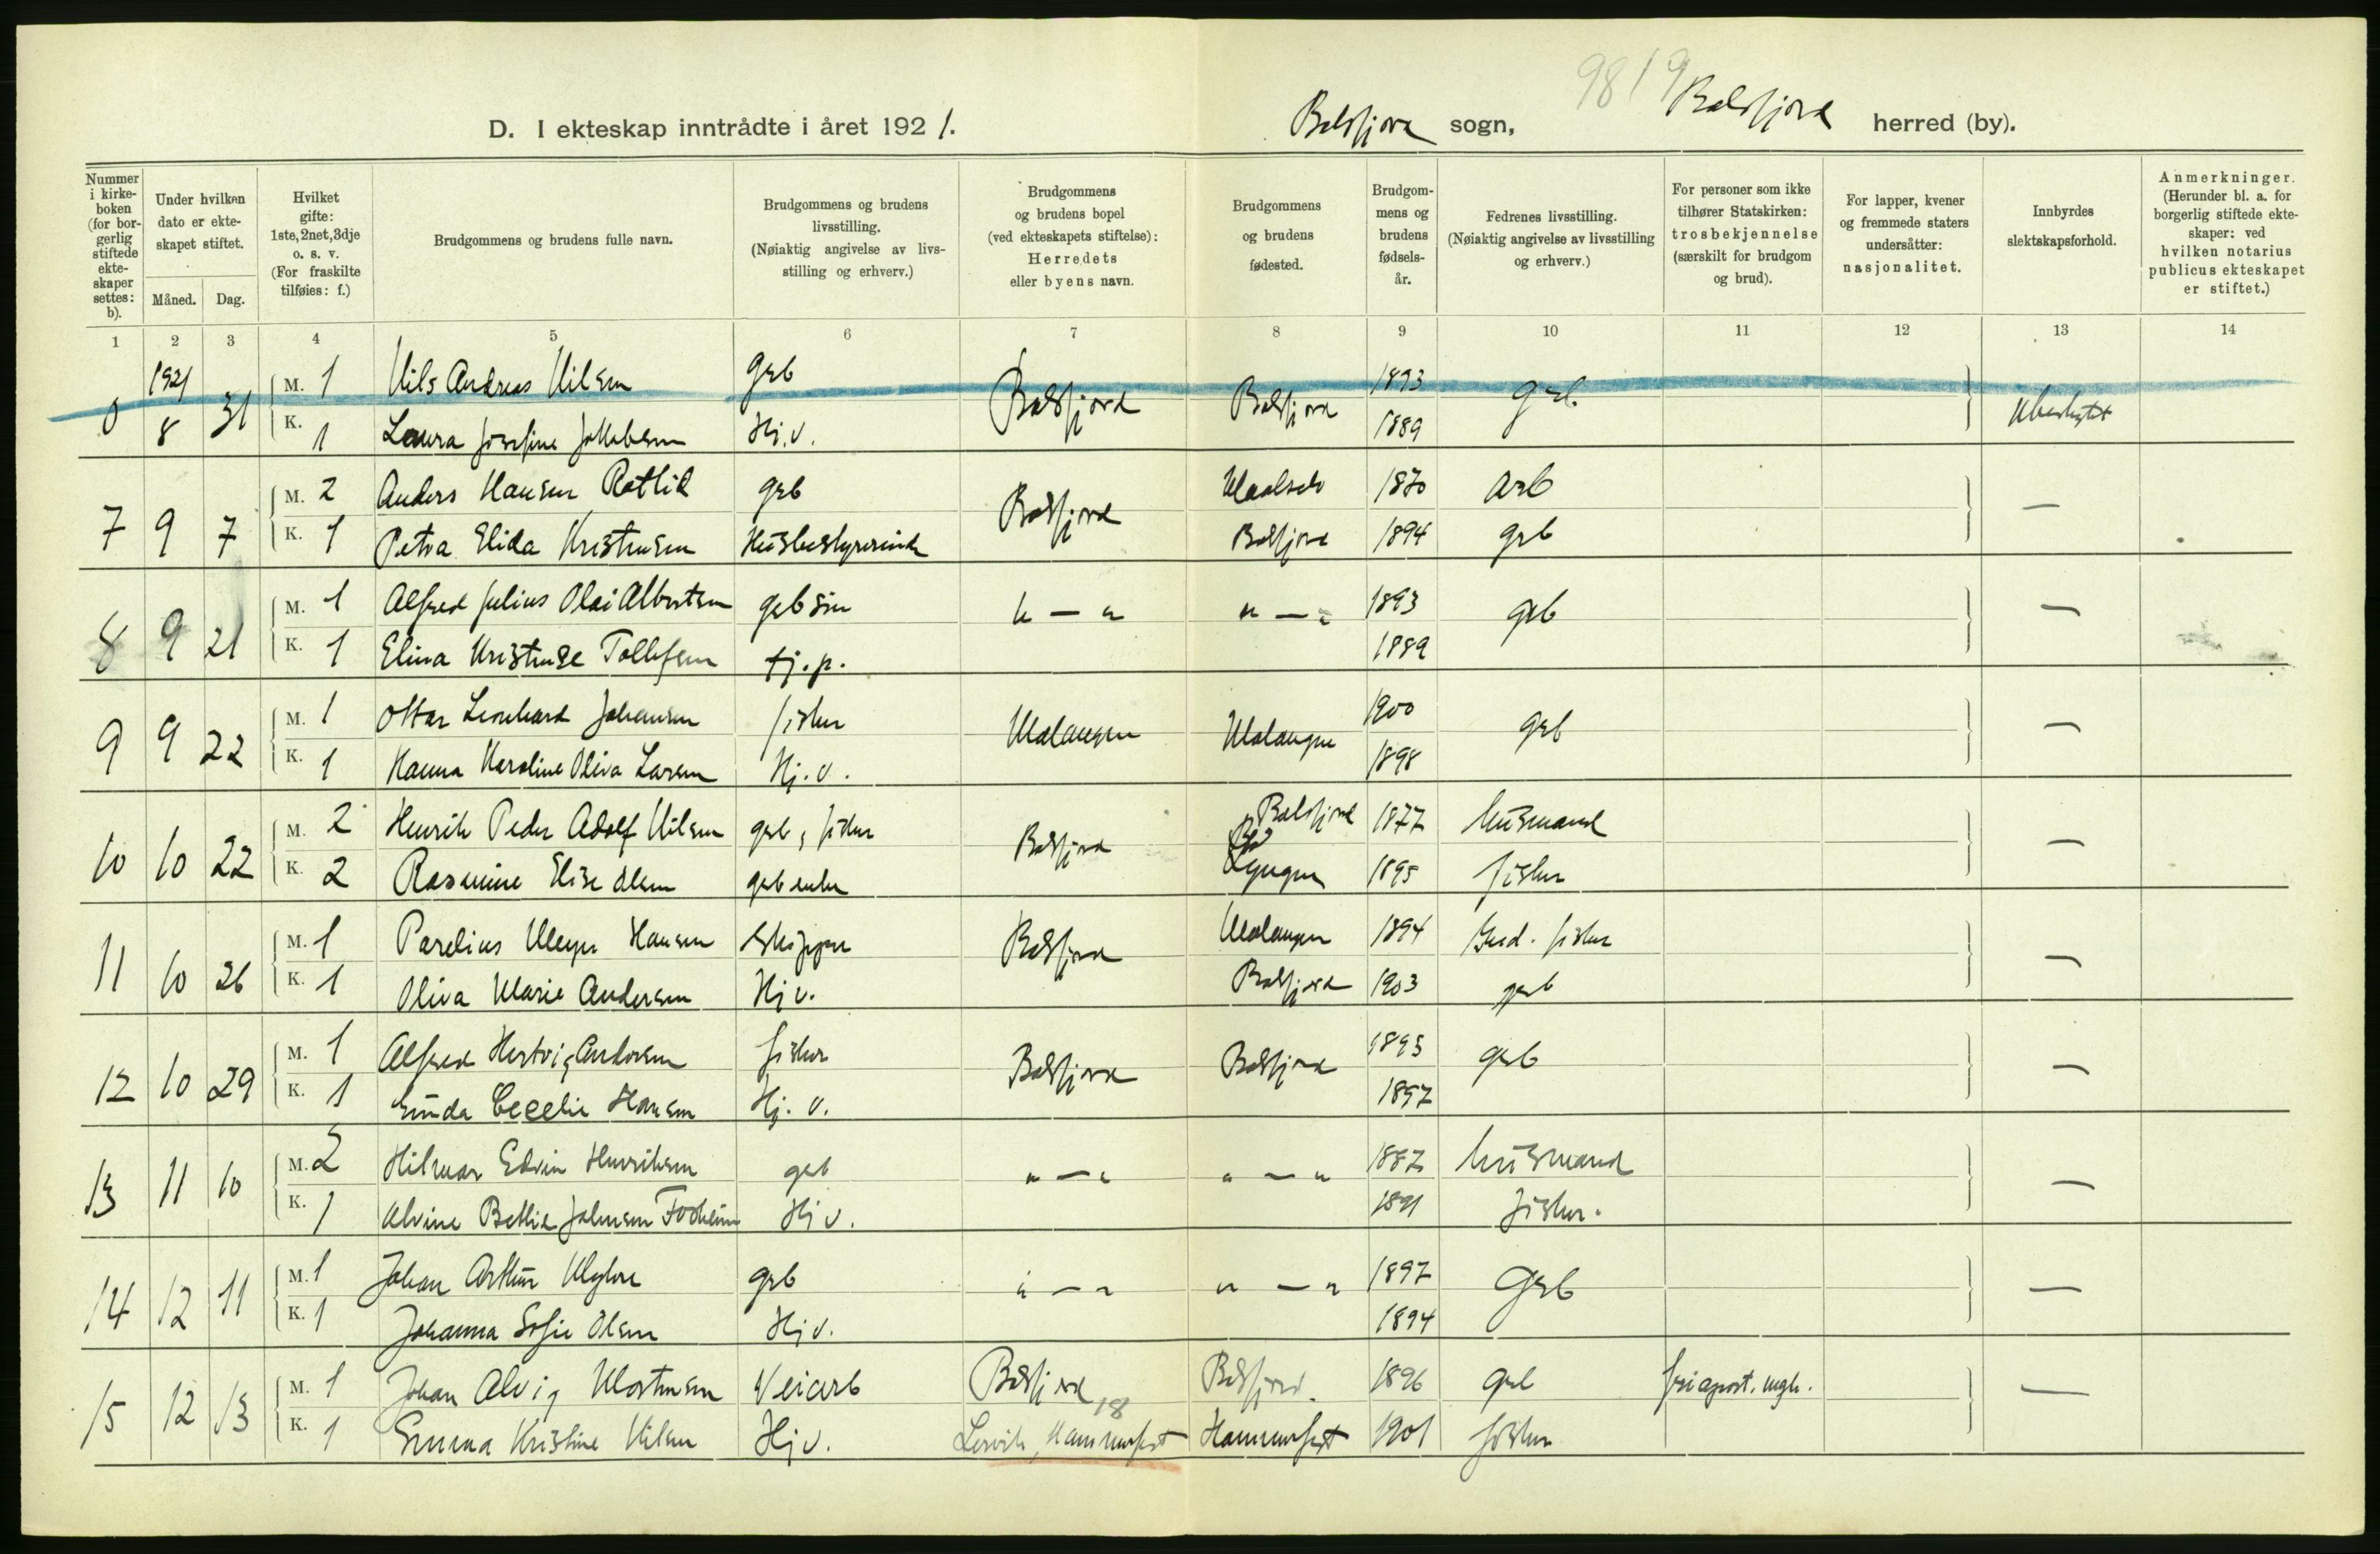 9819
D. I ekteskap inntrådte i året 1921.
Balsfjord sogn, Balsfjord herred (by).
Nummer i kirke-boken (for bor-gerlig stiftede ekte-skaper settes: b).
Under hvilken dato er ekte-skapet stiftet.
Måned. Dag.
Hvilket gifte: 1ste, 2net, 3dje o. s. v. (For fraskilte tilføies: f.)
Brudgommens og brudens fulle navn.
Brudgommens og brudens livsstilling. (Nøiaktig angivelse av livs-stilling og erhverv.)
Brudgommens og brudens bopel (ved ekteskapets stiftelse): Herredets eller byens navn.
Brudgommens og brudens fødested.
Brudgom-mens og brudens fødsels-år.
Fedrenes livsstilling. (Nøiaktig angivelse av livsstilling og erhverv.)
For personer som ikke tilhører Statskirken: trosbekjennelse (særskilt for brudgom og brud).
For lapper, kvener og fremmede staters undersåtter: nasjonalitet.
Innbyrdes slektskapsforhold.
Anmerkninger. (Herunder bl. a. for borgerlig stiftede ekte-skaper: ved hvilken notarius publicus ekteskapet er stiftet.)
1 2 3 4 5 6 7 8 9 10 11 12 13 14
1921
8 31 M. 1 Nils Andreas Nilsen Grb Balsfjord Balsfjord 1893 Grb. Ubeslegtet
K. 1 Laura Josefine Jakobsen Hj.v. 1889
7 9 7 M. 2 Anders Hansen Rotlid grb Balsfjord Maalselv 1870 arb —
K. 1 Petra Elida Kristensen Husbestyrerinde Balsfjord 1894 grb
8 9 21 M. 1 Alfred Julius Olai Albertsen grb søn " — " " — " 1893 grb —
K. 1 Elina Kristense Tollefsen tj.p. 1889
9 9 22 M. 1 Ottar Leonhard Johansen fisker Malangen Malangen 1900 grb —
K. 1 Hanna Karoline Oliva Larsen Hj.v. 1898
10 10 22 M. 2 Henrik Peder Adolf Nilsen grb, fisker Balsfjord Balsfjord 1877 husmand —
K. 2 Rasmine Elise Olsen grb enke Lyngen 1895 fisker
11 10 26 M. 1 Parelius Meyer Hansen Skipper Balsfjord Malangen 1894 Grd. fisker —
K. 1 Oliva Marie Andersen Hj v. Balsfjord 1903 grb
12 10 29 M. 1 Alfred Hertvig Andersen fisker Balsfjord Balsfjord 1895 grb —
K. 1 Cecelie Hansen Hj. v. 1897
13 11 10 M. 2 Hilmar Edvin Henriksen grb " — " " — " 1887 husmand —
K. 1 Alvine Bethie Johnsen Hj v. 1891 fisker.
14 12 11 M. 1 Johan Arthur grb " — " " — " 1897 Grb —
K. 1 Johanna Sofie Olsen Hj v. 1894
15 12 13 M. 1 Johan Alvig Mortensen Veiarb Balsfjord Balsfjord. 1896 grb friapost. mgh. —
18
K. 1 Emma Kristine Nilsen Hj v. Hammerfest Hammerfest 1901 fisker